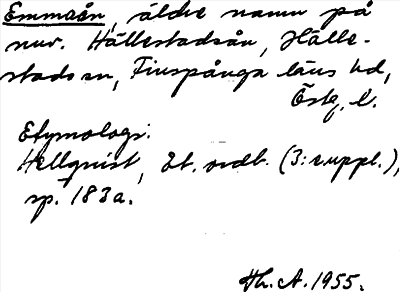 Emmaån, äldre namn på
nuv. Hällestadsån, Hälle-
stads sn, Finspånga läns hd,
Östg. l.
Etymologi:
Hellquist, Et. ordb. (3: suppl.),
sp. 183a.
Th. A. 1955.